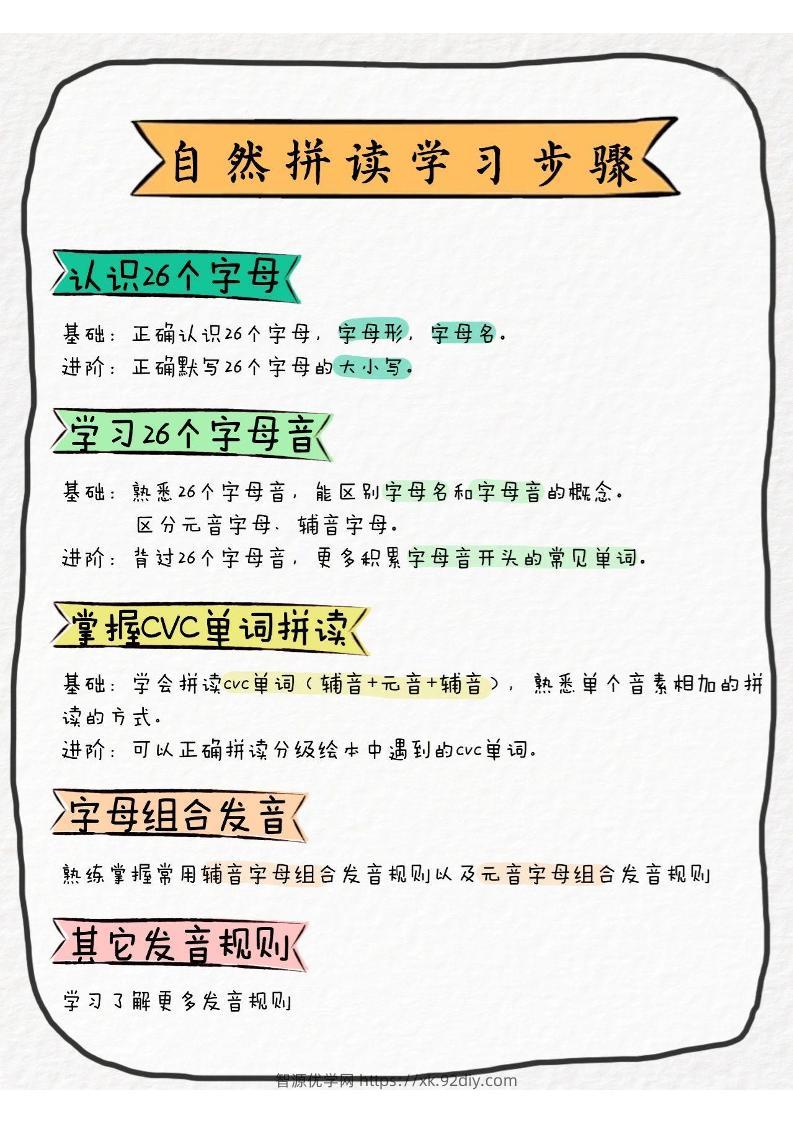 自然拼读学习步骤
认识26个字母
基础：正确认识26个字母，字母形，字母名。
进阶：正确默写26个字母的大小写。
学习26个字母音
基础：熟悉26个字母音，能区别字母名和字母音的概念。
区分元音字母、辅音字母。
进阶：背过26个字母音，更多积累字母音开头的常见单词。
掌握CVC单词拼读
基础：学会拼读cvc单词（辅音+元音+辅音），熟悉单个音素相加的拼
读的方式。
进阶：可以正确拼读分级绘本中遇到的cvc单词。
字母组合发音
熟练掌握常用辅音字母组合发音规则以及元音字母组合发音规则
其它发音规则
学习了解更多发音规则
智源优学网 https://xk.92diy.com